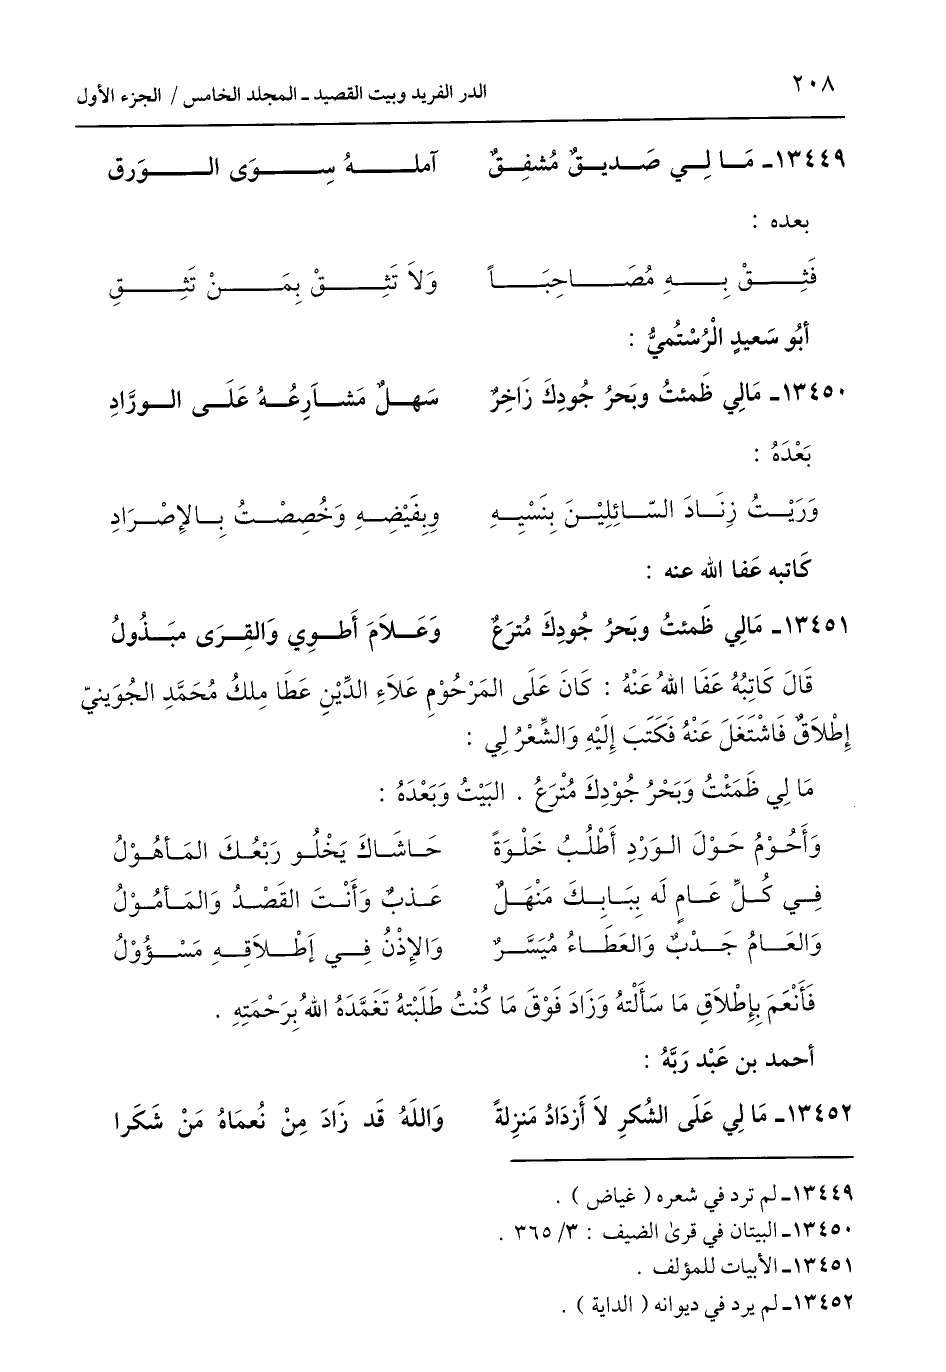 ٢٠٨ الدر الفريد وبيت القصيد ـ المجلد الخامس / الجزء الأول
١٣٤٤٩ـ مَا لِي صَديقٌ مُشفِقٌ آملهُ سِوَى الوَرق
بعده :
فَثِقْ بِهِ مُصَاحِبَاً وَلاَ تَثِقْ بِمَنْ تَثِقِ
أبُو سَعيدٍ الْرُسْتُميُّ :
١٣٤٥٠ـ مَالِي ظَمئتُ وبَحرُ جُودِكَ زَاخِرٌ سَهلٌ مَشَارِعُهُ عَلَى الورَّادِ
بَعْدَهُ :
وَرَيْتُ زِنَادَ السَّائِلِيْنَ بِنَسْيِهِ وبِفَيْضِهِ وَخُصِصْتُ بِالإِصْرَادِ
كَاتبه عَفا الله عنه :
١٣٤٥١ـ مَالِي ظَمئتُ وبَحرُ جُودِكَ مُترَعٌ وَعَلاَمَ أطوِي وَالقِرَى مبَذُولُ
قَالَ كَاتِبُهُ عَفَا اللهُ عَنْهُ : كَانَ عَلَى المَرْحُوْمِ عَلاَءِ الدِّيْنِ عَطَا مِلكُ مُحَمَّدِ الجُوَينيّ
إِطْلاَقٌ فَاشْتَغَلَ عَنْهُ فَكَتَبَ إِلَيْهِ وَالشِّعْرُ لِي :
مَا لِي ظَمَئْتُ وَبَحْرُ جُوْدِكَ مُتْرَعُ . البَيْتُ وَبَعْدَهُ :
وَأَحُوْمُ حَوْلَ الوِرْدِ أَطْلُبُ خَلْوَةً حَاشَاكَ يَخْلُو رَبْعُكَ المَأهُوْلُ
فِي كُلِّ عَامٍ لَه بِبَابِكَ مَنْهَلٌ عَذبٌ وَأَنْتَ القَصْدُ وَالمَأمُوْلُ
وَالعَامُ جَدْبٌ وَالعَطَاءُ مُيَسَّرٌ وَالإِذْنُ فِي إِطْلاَقِهِ مَسْؤُوْلُ
فَأَنْعَمَ بِإِطْلاَقِ مَا سَأَلْتهُ وَزَادَ فَوْقَ مَا كُنْتُ طَلَبْتهُ تَغَمَّدَهُ اللهُ بِرَحْمَتِهِ .
أحمد بن عَبْد رَبَّهُ :
١٣٤٥٢ـ مَا لِي عَلَى الشُكرِ لاَ أَزدَادُ مَنزِلةً وَاللَهُ قَد زَادَ مِنْ نُعمَاهُ مَنْ شَكَرا
١٣٤٤٩ـ لم ترد في شعره ( غياض ) .
١٣٤٥٠ـ البيتان في قرىٰ الضيف : ٣/ ٣٦٥ .
١٣٤٥١ـ الأبيات للمؤلف .
١٣٤٥٢ـ لم يرد في ديوانه ( الداية ) .